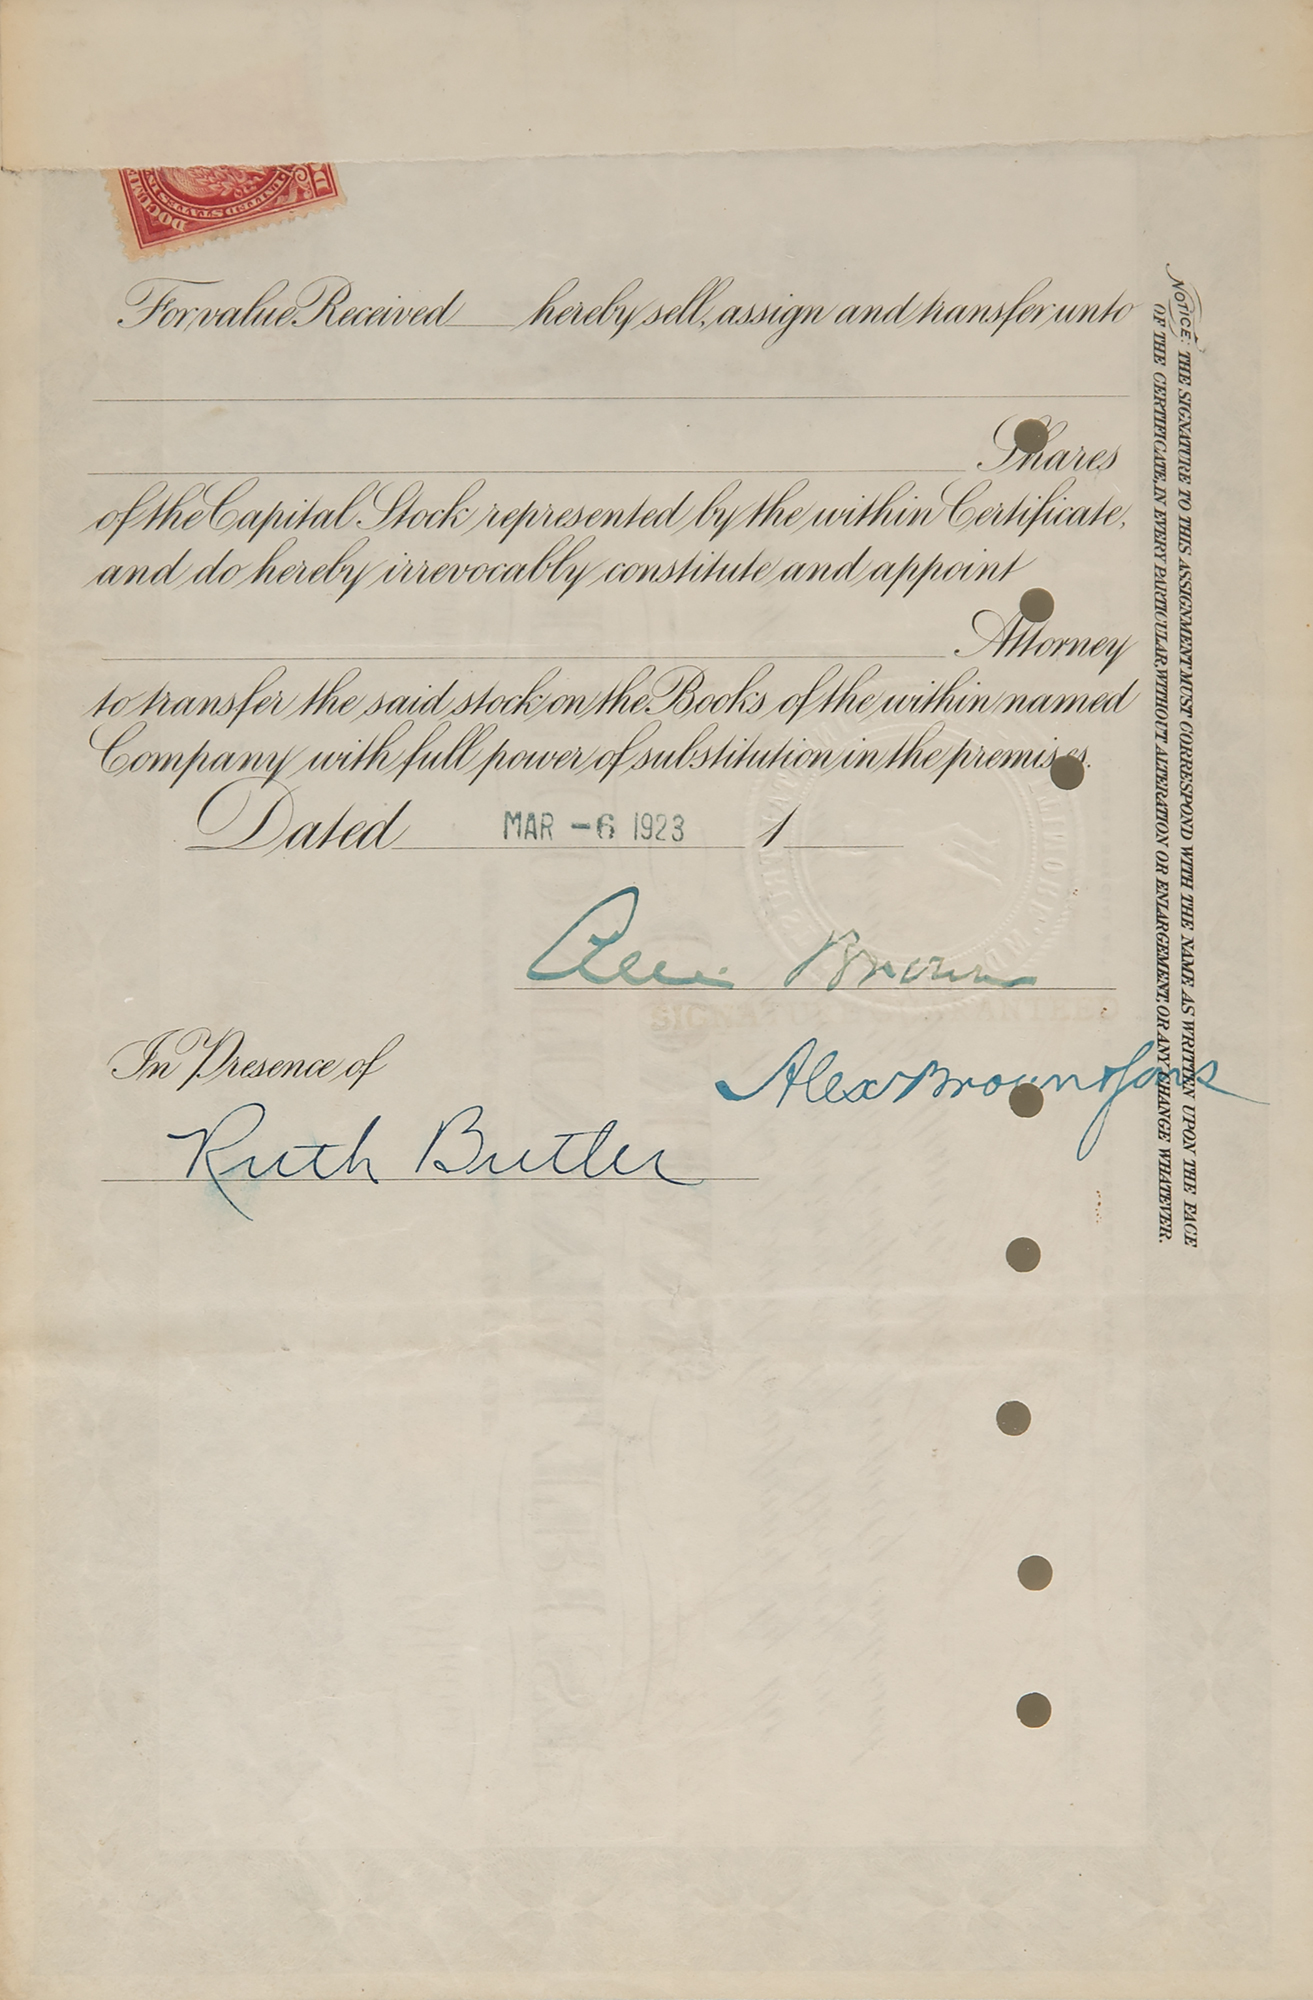 DOCUME
UNITED STATES IN
For value Received hereby sell, assign and transfer unto
Shares
of the Capital Stock represented by the within Certificate,
and do hereby irrevocably constitute and appoint
Attorney
to transfer the said stock on the Books of the within named
Company with full power of substitution in the premises.
Dated MAR -6 1923 1
Brown
SIGNATURE GUARANTEED
In Presence of
Alex Brown & Sons
Ruth Butler
NOTICE: THE SIGNATURE TO THIS ASSIGNMENT MUST CORRESPOND WITH THE NAME AS WRITTEN UPON THE FACE
OF THE CERTIFICATE, IN EVERY PARTICULAR, WITHOUT ALTERATION OR ENLARGEMENT, OR ANY CHANGE WHATEVER.